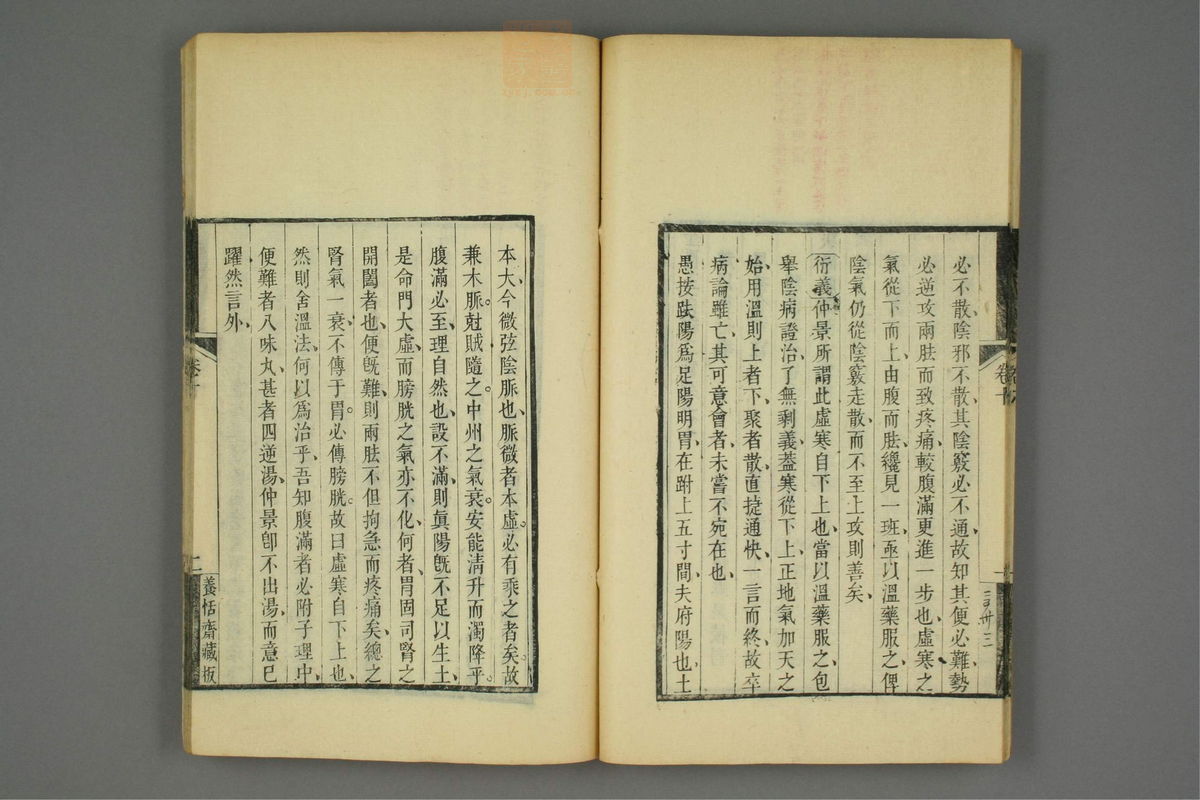 必不散陰邪不散其陰竅必不通故知其便必難勢
必逆攻兩胠而致疼痛較腹滿更進一步也虛寒之
氣從下而上由腹而胠纔見一班亟以溫藥服之俾
陰氣仍從陰竅走散而不至上攻則善矣
衍義仲景所謂此虛寒自下上也當以溫藥服之包
舉陰病證治了無剩義葢寒從下上正地氣加天之
始用溫則上者下聚者散直捷通快一言而終故卒
病論雖亡其可意會者未嘗不宛在也
愚按趺陽爲足陽明胃在跗上五寸間夫府陽也土
卷十
一
本大今微弦陰脈也脈微者本虛必有乘之者矣故
兼木脈尅賊隨之中州之氣衰安能淸升而濁降乎
腹滿必至理自然也設不滿則眞陽旣不足以生土
是命門大虛而膀胱之氣亦不化何者胃固司腎之
開闔者也便旣難則兩胠不但拘急而疼痛矣總之
腎氣一衰不傳于胃必傳膀胱故曰虛寒自下上也
然則舍溫法何以爲治乎吾知腹滿者必附子理中
便難者八味丸甚者四逆湯仲景卽不出湯而意已
躍然言外
卷十
二
養恬齋藏板